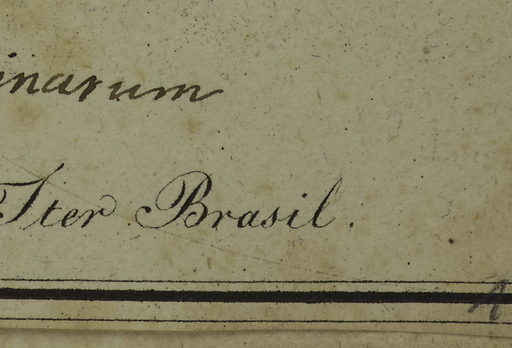 inarum
Iter Brasil.